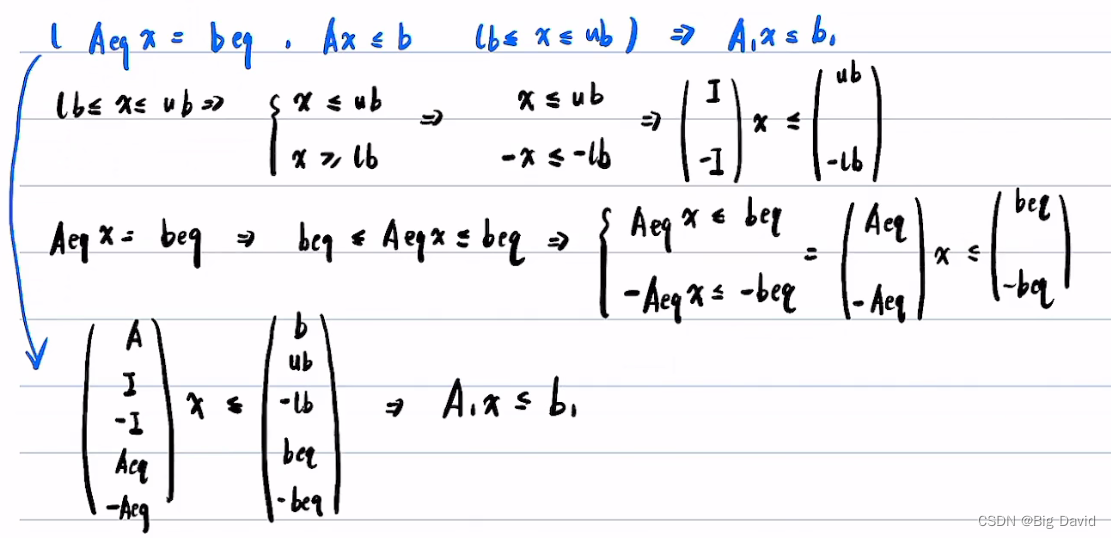 ( Aeq x = beq , Ax ≤ b (lb ≤ x ≤ ub) ⇒ A₁x ≤ b₁
lb ≤ x ≤ ub ⇒ { x ≤ ub x ≥ lb ⇒ x ≤ ub -x ≤ -lb ⇒ ( I -I ) x ≤ ( ub -lb )
Aeq x = beq ⇒ beq ≤ Aeq x ≤ beq ⇒ { Aeq x ≤ beq -Aeq x ≤ -beq = ( Aeq -Aeq ) x ≤ ( beq -beq )
( A I -I Aeq -Aeq ) x ≤ ( b ub -lb beq -beq ) ⇒ A₁x ≤ b₁
CSDN @Big David